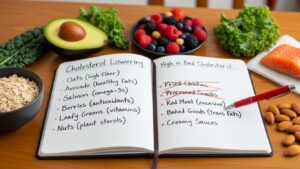 Cholesterol Lowering
- Oats (high fiber)
- Avocado (healthy fats)
- Salmon (omega-3s)
- Berries (antioxidants)
- Leafy Greens (vitamins)
- Nuts (plant sterols)
High in Bad Cholesterol
Fried Chicken
Processed Snacks
Red Meat (excessive)
Baked Goods (trans fats)
Creamy Sauces